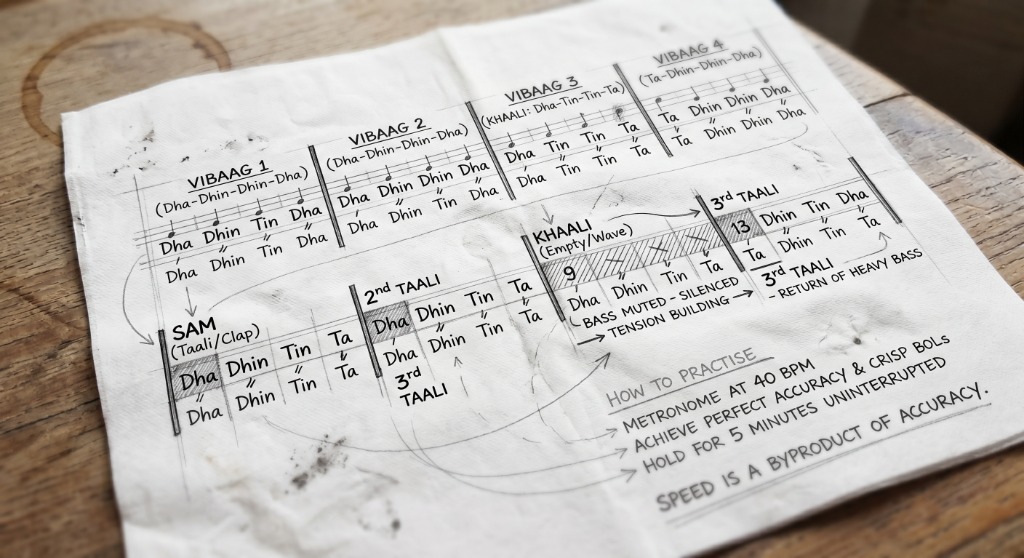 VIBAAG 1
(Dha-Dhin-Dhin-Dha)
Dha Dhin Tin Dha
Dha Dhin Tin Dha
VIBAAG 2
(Dha-Dhin-Dhin-Dha)
Dha Dhin Dhin Dha
Dha Dhin Tin Dha
VIBAAG 3
(KHAALI: Dha-Tin-Tin-Ta)
Dha Tin Tin Ta
Dha Tin Tin Ta
VIBAAG 4
(Ta-Dhin-Dhin-Dha)
Ta Dhin Dhin Dha
Ta Dhin Dhin Dha
SAM
(Taali/Clap)
Dha Dhin Tin Ta
Dha Dhin Tin Ta
2nd TAALI
Dha Dhin Tin Ta
Dha Dhin Tin Ta
3rd
TAALI
KHAALI
(Empty/Wave)
9
Dha Dhin Tin Ta
BASS MUTED - SILENCED
TENSION BUILDING
3rd TAALI
13 Dhin Tin Dha
Ta Dhin Tin Ta
3rd TAALI
- RETURN OF HEAVY BASS
HOW TO PRACTISE
METRONOME AT 40 BPM
ACHIEVE PERFECT ACCURACY & CRISP BOLS
HOLD FOR 5 MINUTES UNINTERRUPTED
SPEED IS A BYPRODUCT OF ACCURACY.